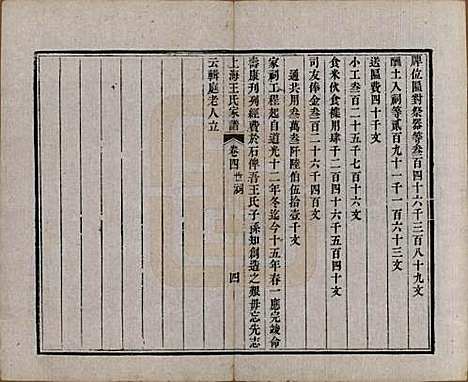 牌位匾對祭器等叁百四十六千三百八十九文
酬土入祠等貳百九十一千一百六十三文
送匾費四十千文
小工叁百二十五千七百十六文
食米伙食僱用肆千二百四十六千五百四十文
司友俸金叁百二十六千四百文
通共用叁萬叁阡陸伯伍拾壹千文
家祠工程起自道光十二年冬迄今十五年春一應完竣命
壽康刊列經費於石俾吾王氏子孫知創造之艱毋忘先志
上海王氏家譜
卷四 世祠
四
云輯庭老人立